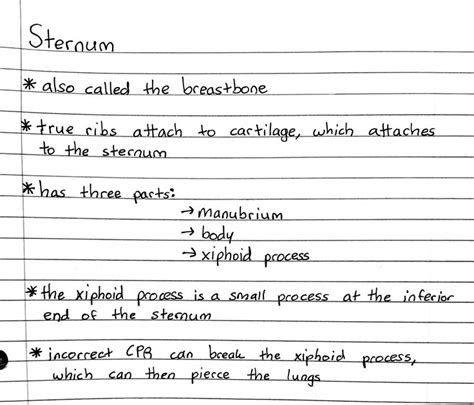 Sternum
* also called the breastbone
* true ribs attach to cartilage, which attaches
to the sternum
* has three parts:
→ manubrium
→ body
→ xiphoid process
* the xiphoid process is a small process at the inferior
end of the sternum
* incorrect CPR can break the xiphoid process,
which can then pierce the lungs